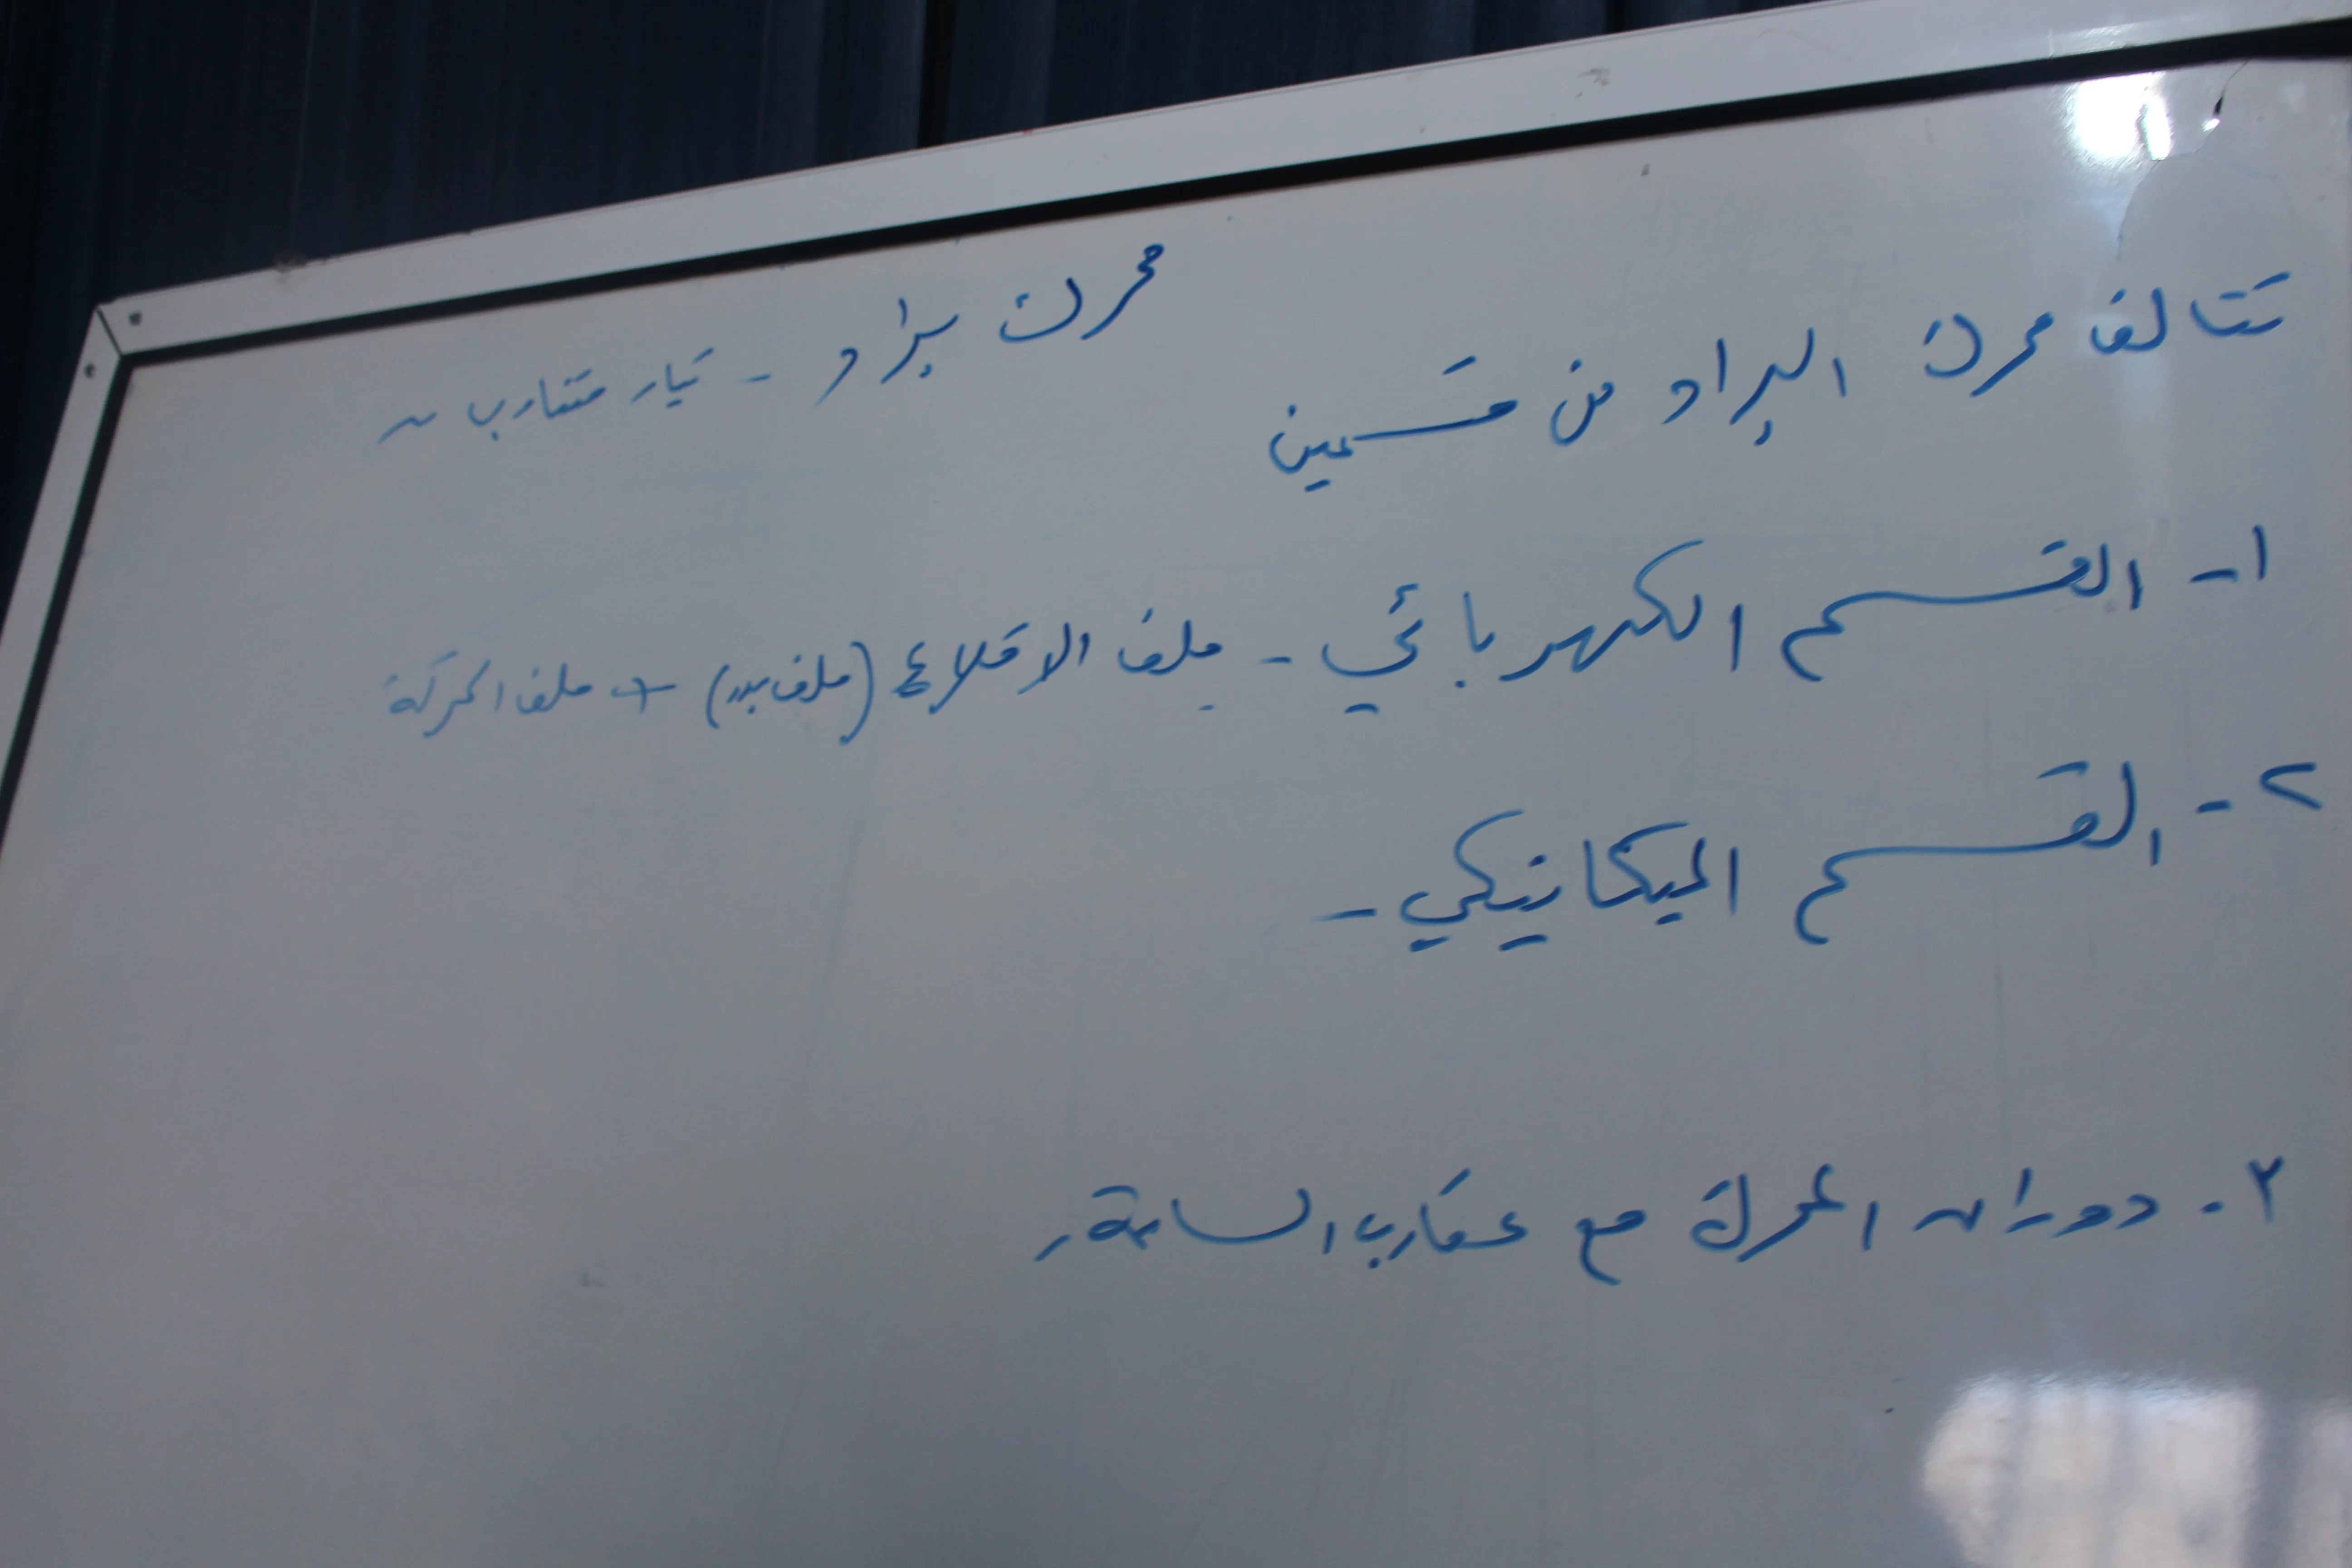 محرك براد - تيار متناوب ~
تتالف محرك البراد من قسمين
١- القسم الكهربائي - ملف الاقلاع (ملف بدء) + ملف الحركة
٢- القسم الميكانيكي -
٣- دوران المحرك مع عقارب الساعة